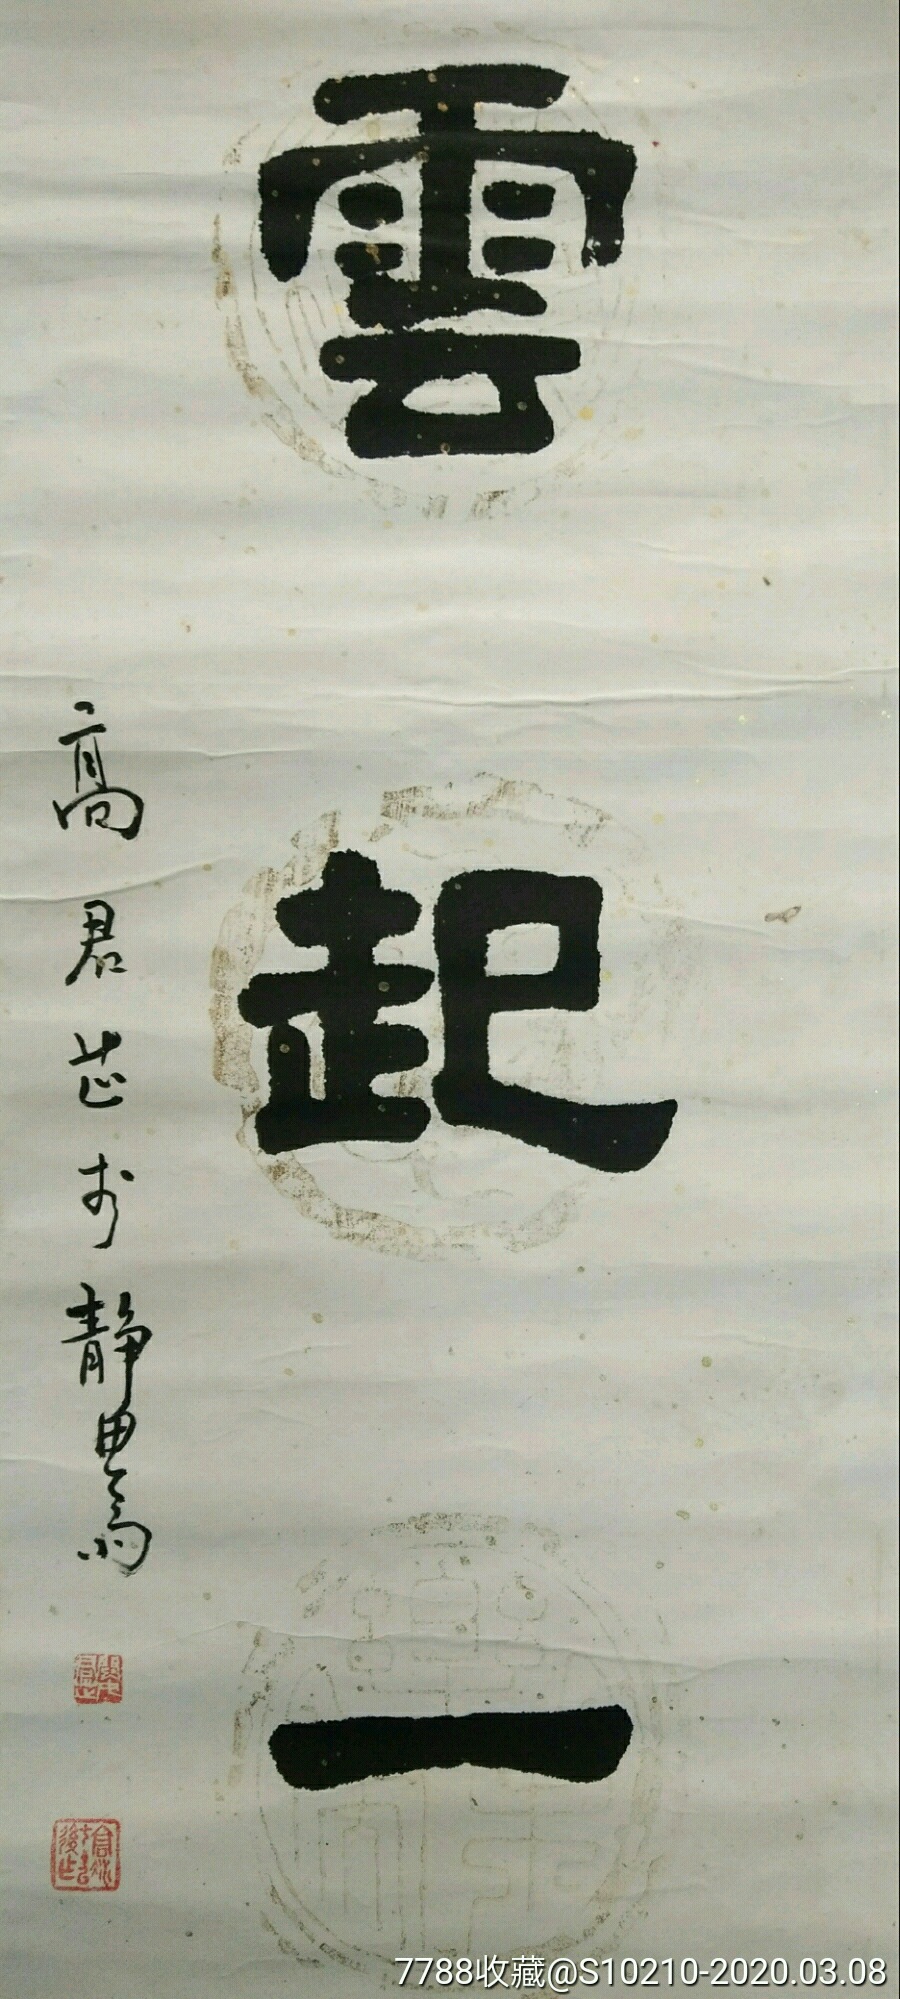 雲起一
高君芷於靜思齋
7788收藏@S10210-2020.03.08